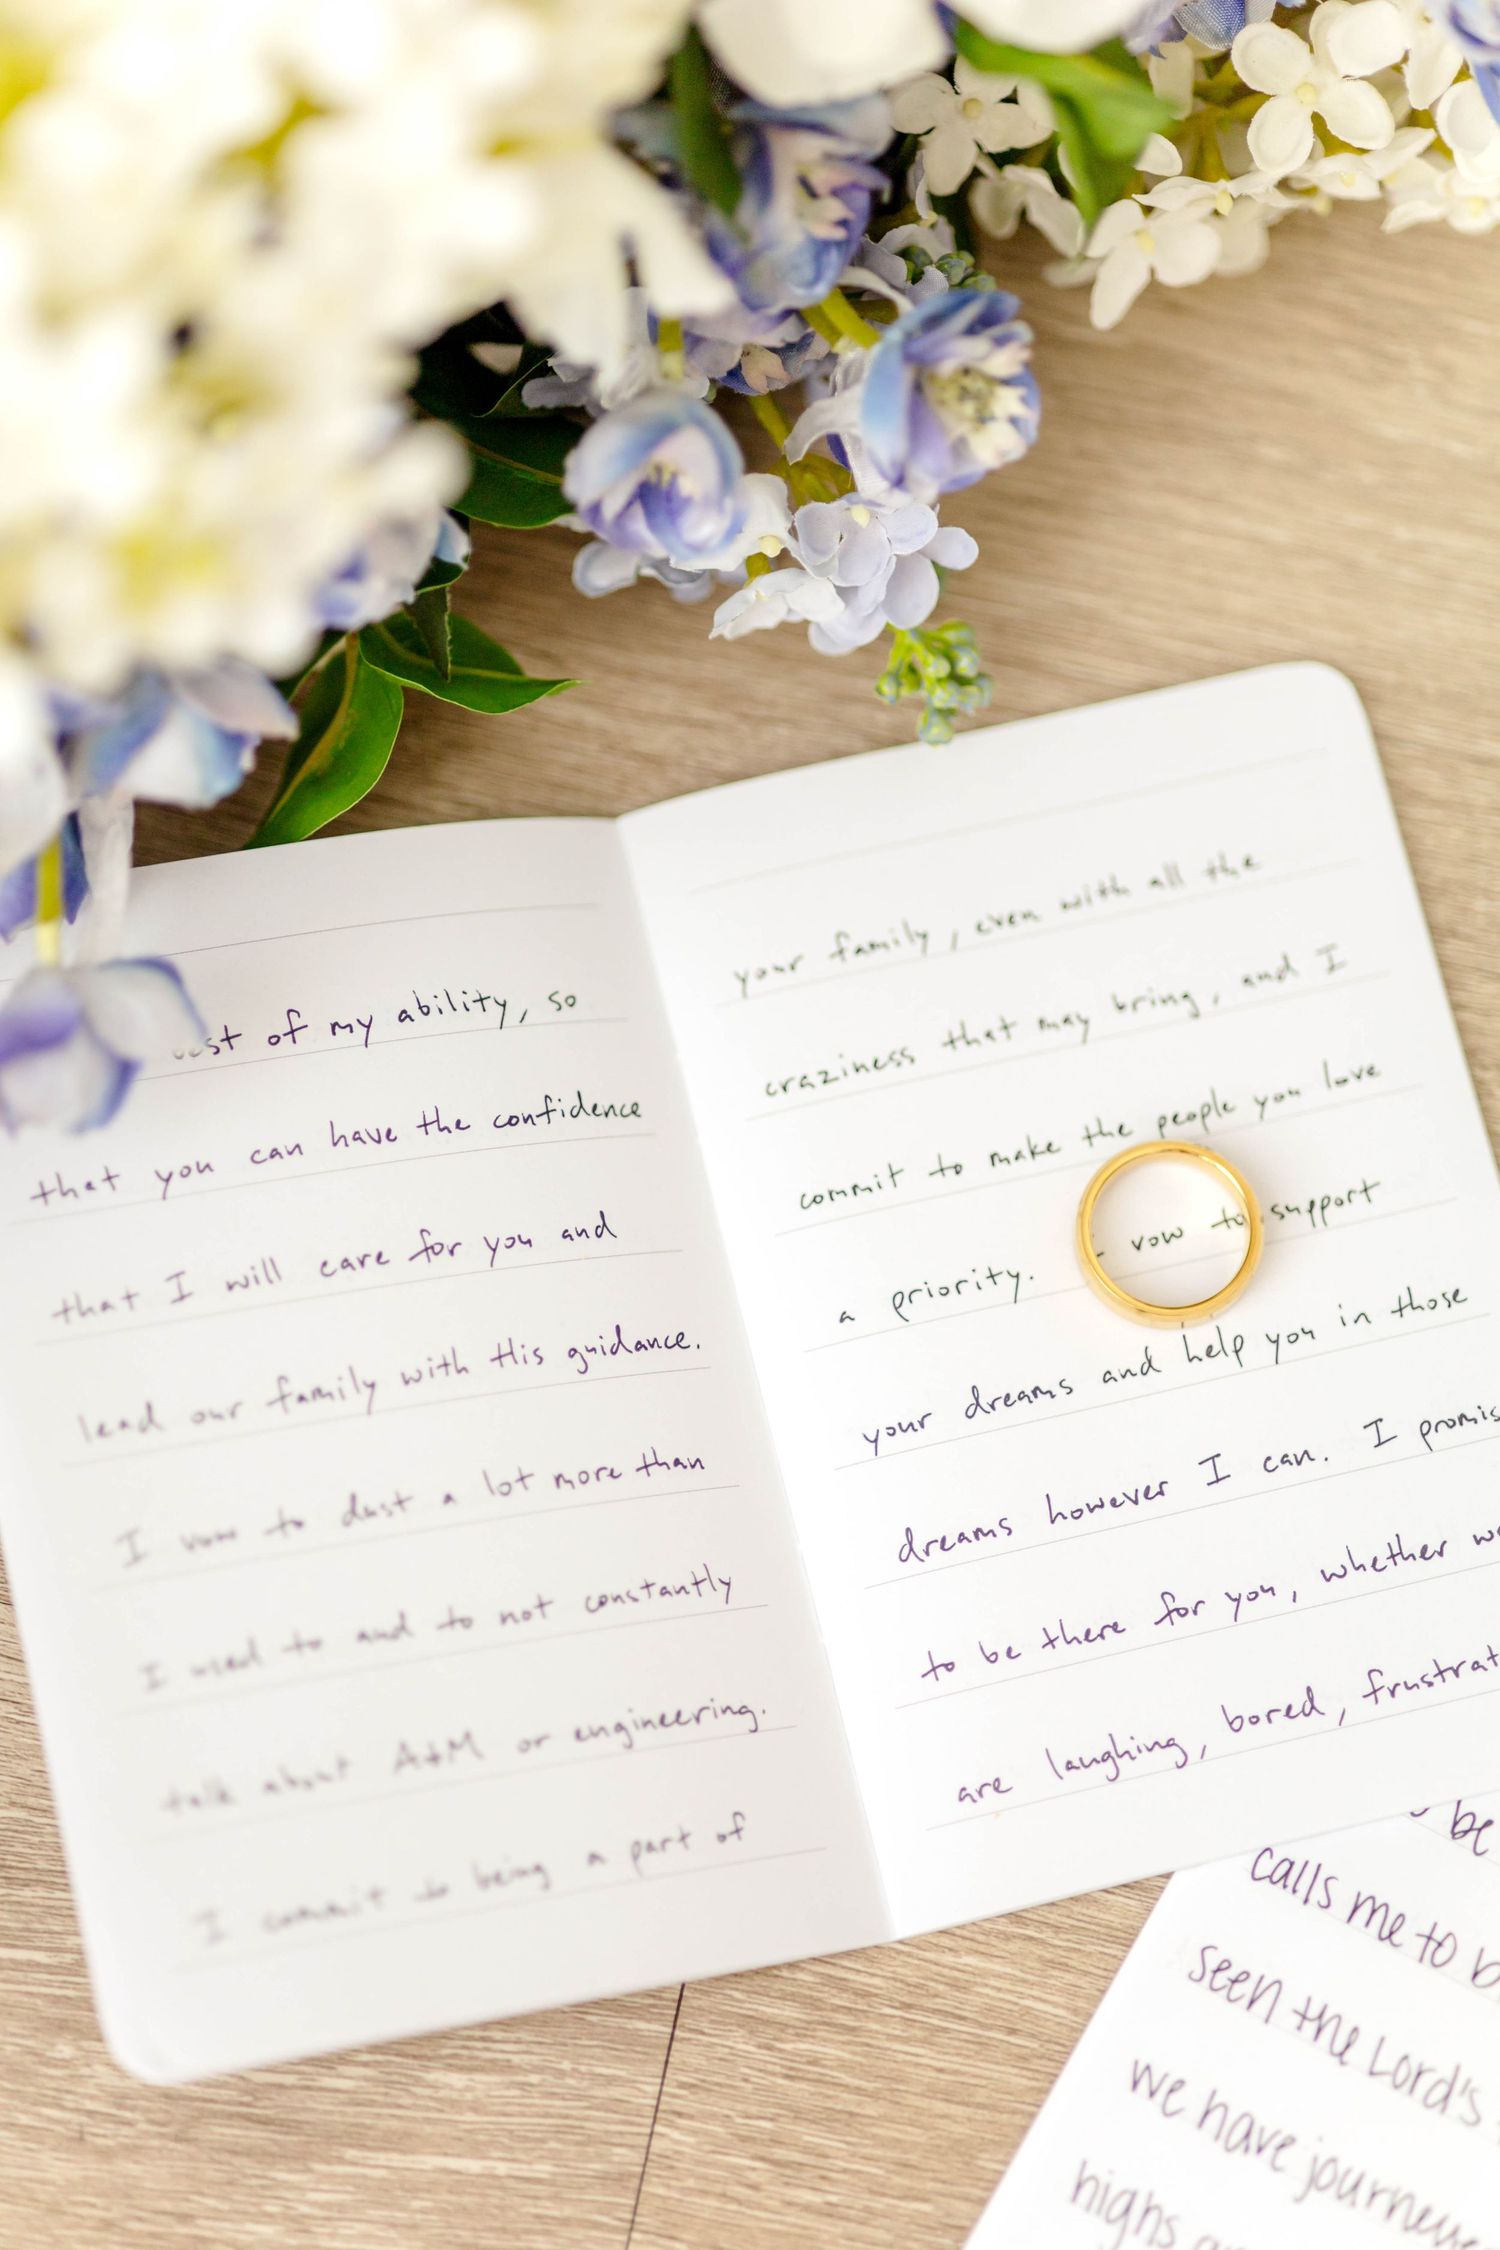 best of my ability, so
that you can have the confidence
that I will care for you and
lead our family with His guidance.
I vow to dust a lot more than
I used to and to not constantly
talk about A&M or engineering.
I commit to being a part of
your family, even with all the
craziness that may bring, and I
commit to make the people you love
a priority. I vow to support
your dreams and help you in those
dreams however I can. I promis
to be there for you, whether we
are laughing, bored, frustrat
be
calls me to b
seen the Lord's
we have journeye
highs